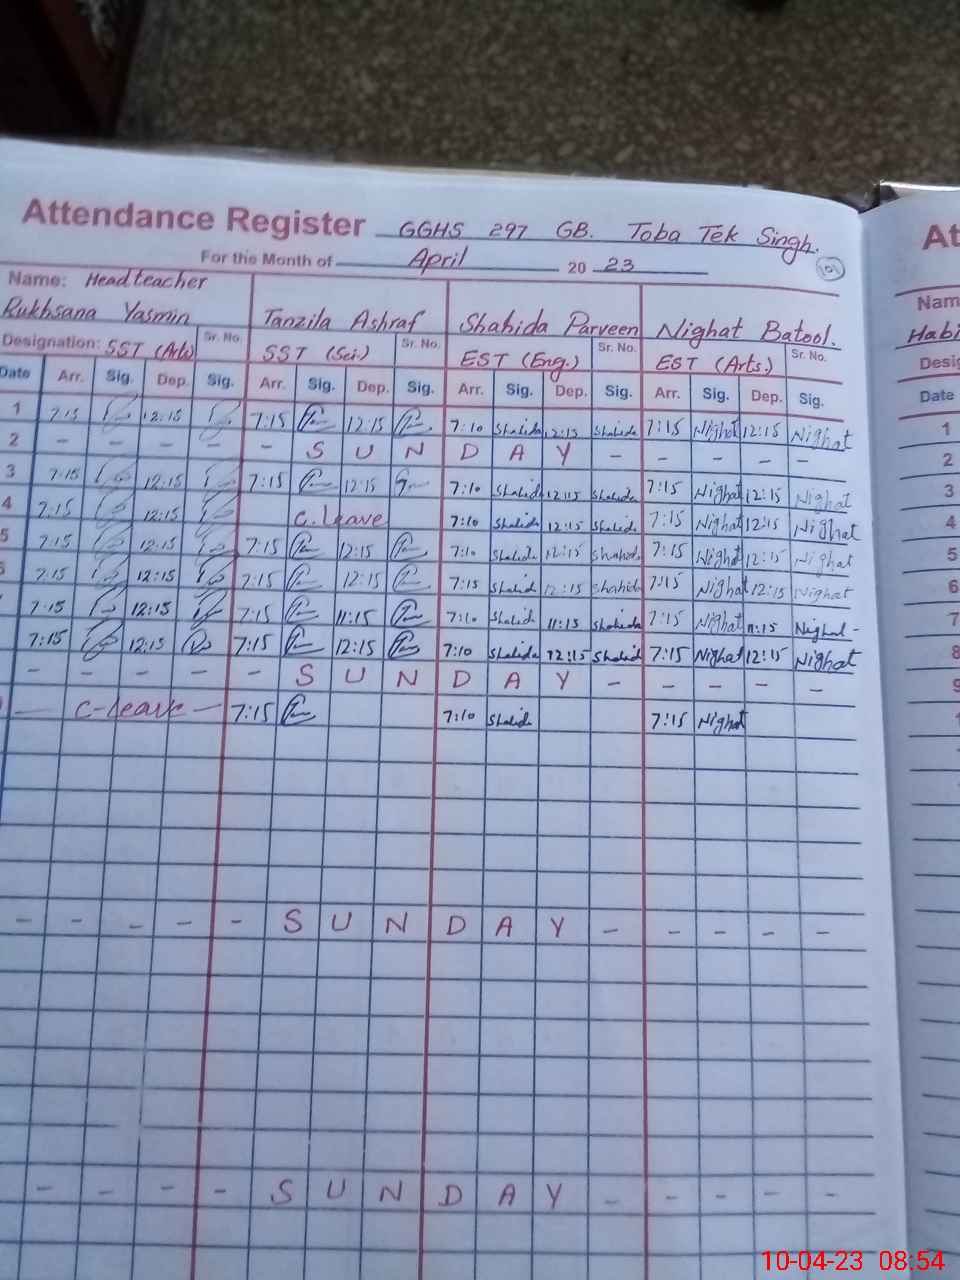 Attendance Register GGHS 297 GB. Toba Tek Singh.
For the Month of April 20 23
101
Name: Headteacher
Rukhsana Yasmin Tanzila Ashraf Shahida Parveen Nighat Batool.
Designation: SST (Arts) Sr. No. SST (Sci.) Sr. No. EST (Eng.) Sr. No. EST (Arts.) Sr. No.
Date Arr. Sig. Dep. Sig. Arr. Sig. Dep. Sig. Arr. Sig. Dep. Sig. Arr. Sig. Dep. Sig.
1 7:15 12:15 7:15 12:15 7:10 Shahida 12:15 Shahida 7:15 Nighat 12:15 Nighat
2 - - - - - S U N D A Y - - - - -
3 7:15 12:15 7:15 12:15 7:10 Shahida 12:15 Shahida 7:15 Nighat 12:15 Nighat
4 7:15 12:15 C.leave 7:10 Shahida 12:15 Shahida 7:15 Nighat 12:15 Nighat
5 7:15 12:15 7:15 12:15 7:10 Shahida 12:15 Shahida 7:15 Nighat 12:15 Nighat
7:15 12:15 7:15 12:15 7:15 Shahida 12:15 Shahida 7:15 Nighat 12:15 Nighat
7:15 12:15 7:15 11:15 7:10 Shahida 11:15 Shahida 7:15 Nighat 11:15 Nighat -
7:15 12:15 7:15 12:15 7:10 Shahida 12:15 Shahida 7:15 Nighat 12:15 Nighat
- - - - - S U N D A Y - - - - -
— C-leave — 7:15 7:10 Shahida 7:15 Nighat
- - - - - S U N D A Y - - - - -
- - - - S U N D A Y - - - - -
At
Nam
Habi
Desig
Date
1
2
3
4
5
6
7
8
9
10-04-23 08:54